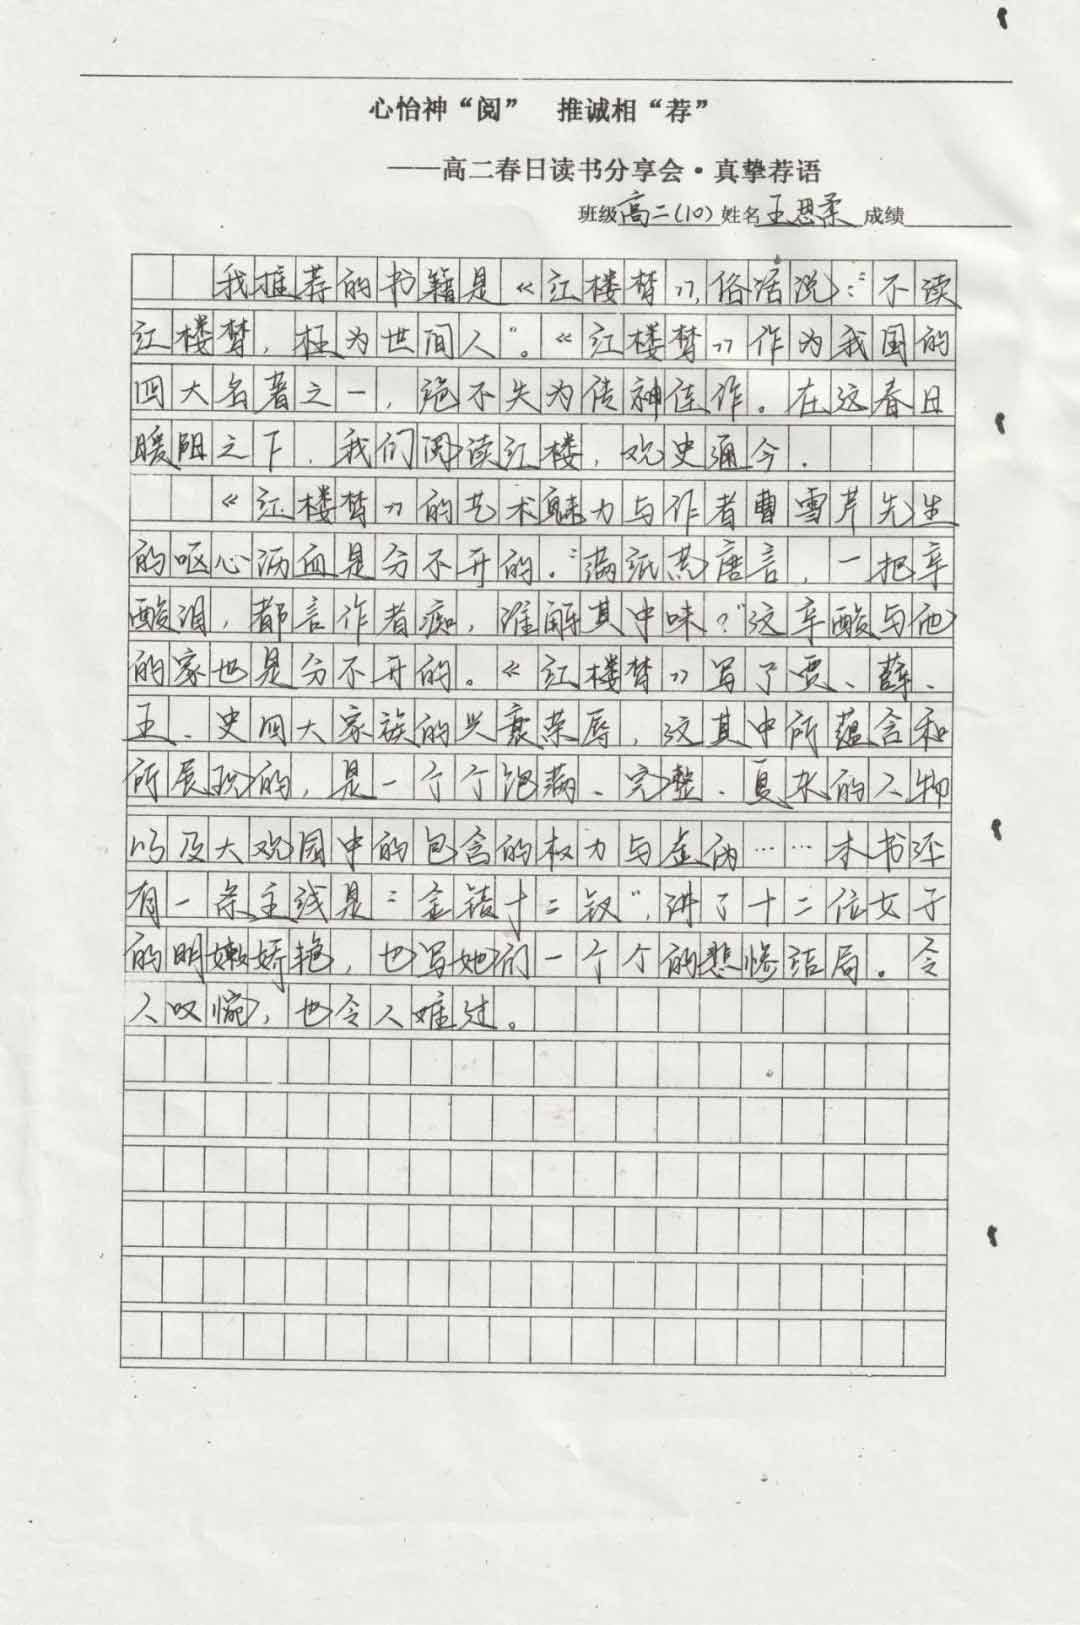 心怡神“阅”　推诚相“荐”
——高二春日读书分享会·真挚荐语
班级高二(10)姓名王思柔成绩
我推荐的书籍是《红楼梦》，俗话说：“不读
红楼梦，枉为世间人”。《红楼梦》作为我国的
四大名著之一，绝不失为传神佳作。在这春日
暖阳之下，我们阅读红楼，观史通今．
《红楼梦》的艺术魅力与作者曹雪芹先生
的呕心沥血是分不开的．“满纸荒唐言，一把辛
酸泪，都言作者痴，谁解其中味？”这辛酸与他
的家也是分不开的。《红楼梦》写了贾、薛、
王、史四大家族的兴衰荣辱，这其中所蕴含和
所展现的，是一个个饱满、完整、复杂的人物
以及大观园中的包含的权力与虚伪……本书还
有一条主线是“金钗十二钗”，讲了十二位女子
的明嫩娇艳，也写她们一个个的悲惨结局。令
人叹惋，也令人难过。